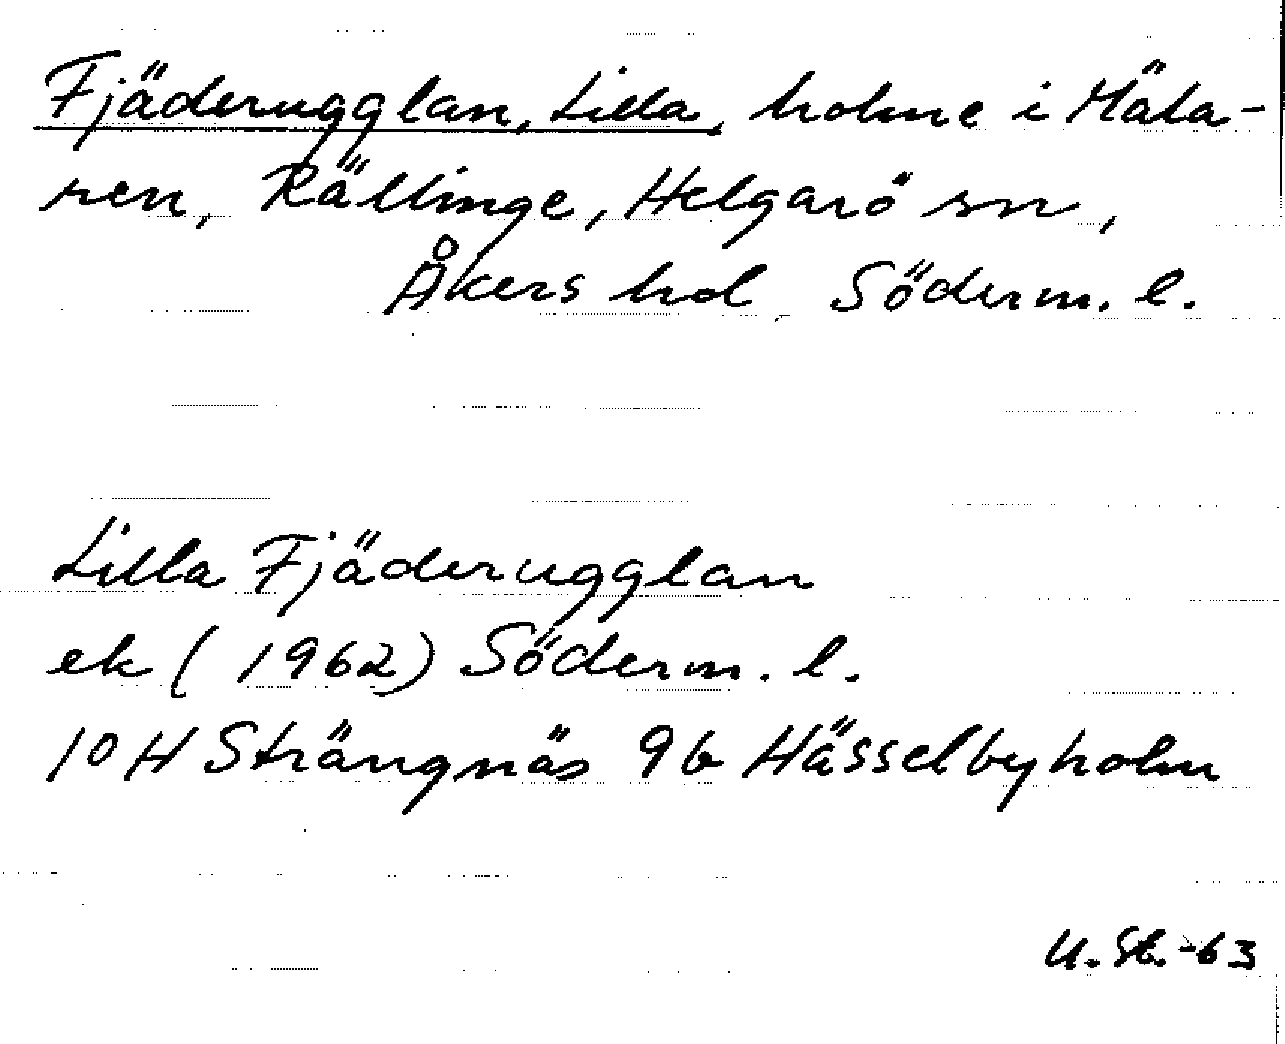 Fjäderugglan, Lilla, holme i Mäla-
ren, Rällinge, Helgarö sn,
Åkers hd Söderm. l.
Lilla Fjäderugglan
ek (1962) Söderm. l.
10 H Strängnäs 9b Hässelbyholm
U. St. -63